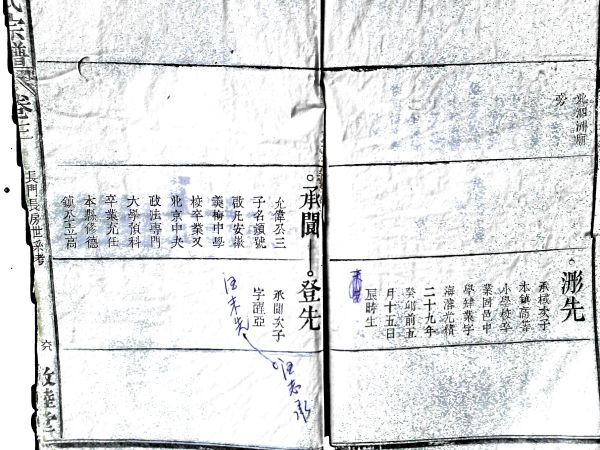 氏宗譜
卷三
長門長房世系考
六
敦睦堂
北泗洲廟
旁
澎先
承棫次子
本鎮高等
小學校卒
業回邑中
學肄業字
海濤光緒
二十九年
癸卯前五
月十五日
辰時生
承聞
允偉公三
子名鎮號
啟凡安徽
義梅中學
校卒業又
北京中央
政法專門
大學預科
卒業充任
本縣修德
鎮公立高
登先
承聞次子
字醒亞
汪未先
汪志承